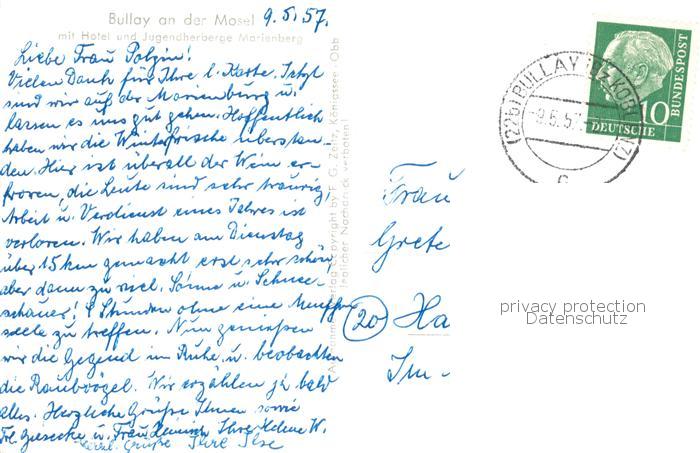 Bullay an der Mosel
9.5.57.
mit Hotel und Jugendherberge Marienberg
Liebe Frau Polzin!
Vielen Dank für Ihre l. Karte. Jetzt
sind wir auf der Marienburg u.
lassen es uns gut gehen. Hoffentlich
haben wir die Winterfrische überstan
den. Hier ist überall der Wein er-
froren, die Leute sind sehr traurig
Arbeit u. Verdienst eines Jahres ist
verloren. Wir haben am Dienstag
über 15 km gemacht erst sehr schön
aber dann zu viel. Sonne u. Schnee-
schauer! 8 Stunden ohne eine Menschen
seele zu treffen. Nun genießen
wir die Gegend in Ruhe u. beobachten
die Raubvögel. Wir erzählen ja bald
alles. Herzliche Grüße Ihnen sowie
Frl. Giesecke u. Frau Heinrich Ihre Helene W.
herzl. Grüße Ihre Ilse
Copyright by F. G. Zeitz, Königssee, Obb
Jeglicher Nachdruck verboten!
(22b) BULLAY
-9.5.57
c
10
DEUTSCHE
BUNDESPOST
Frau
Grete
20 Ha
Im -
privacy protection
Datenschutz